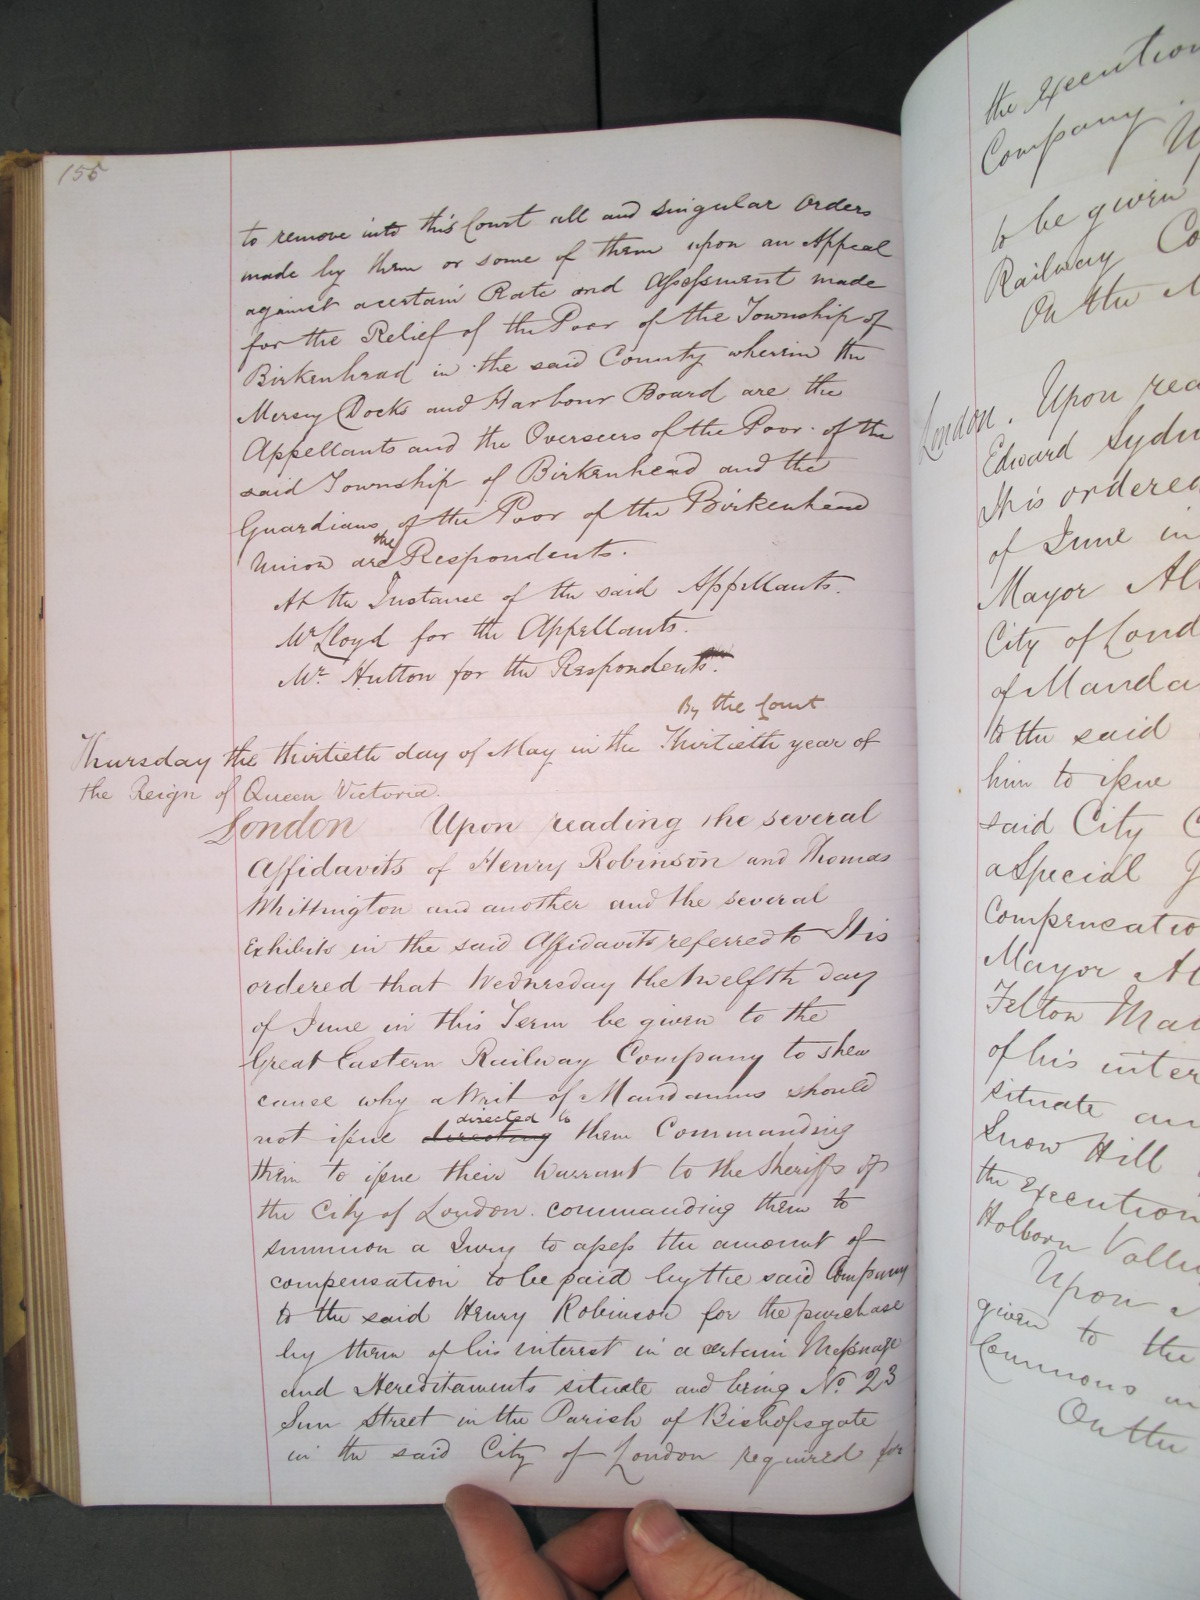 155
to remove into this Court all and singular Orders
made by them or some of them upon an Appeal
against a certain Rate and Assessment made
for the Relief of the Poor of the Township of
Birkenhead in the said County wherein the
Mersey Docks and Harbour Board are the
Appellants and the Overseers of the Poor of the
said Township of Birkenhead and the
Guardians of the Poor of the Birkenhead
Union are the Respondents.
At the Instance of the said Appellants.
Mr Lloyd for the Appellants.
Mr. Hutton for the Respondents.
By the Court
Thursday the thirtieth day of May in the Thirtieth year of
the Reign of Queen Victoria.
London Upon reading the several
Affidavits of Henry Robinson and Thomas
Whittington and another and the several
Exhibits in the said Affidavits referred to It is
ordered that Wednesday the twelfth day
of June in this Term be given to the
Great Eastern Railway Company to shew
cause why a Writ of Mandamus should
not issue directing directed to them Commanding
them to issue their Warrant to the Sheriffs of
the City of London commanding them to
summon a Jury to assess the amount of
compensation to be paid by the said Company
to the said Henry Robinson for the purchase
by them of his interest in a certain Messuage
and Hereditaments situate and being No. 23
Sun Street in the Parish of Bishopsgate
in the said City of London required for
the execution
Company.
to be given
Railway Co
On the
London. Upon rea
Edward Sydn
It is ordered
of June in
Mayor Al
City of Lond
of Manda
to the said
him to issue
said City
a Special
Compensatio
Mayor Al
Felton
of his inter
situate an
Snow Hill
the execution
Holborn Valle
Upon
given to the
Commons
On the